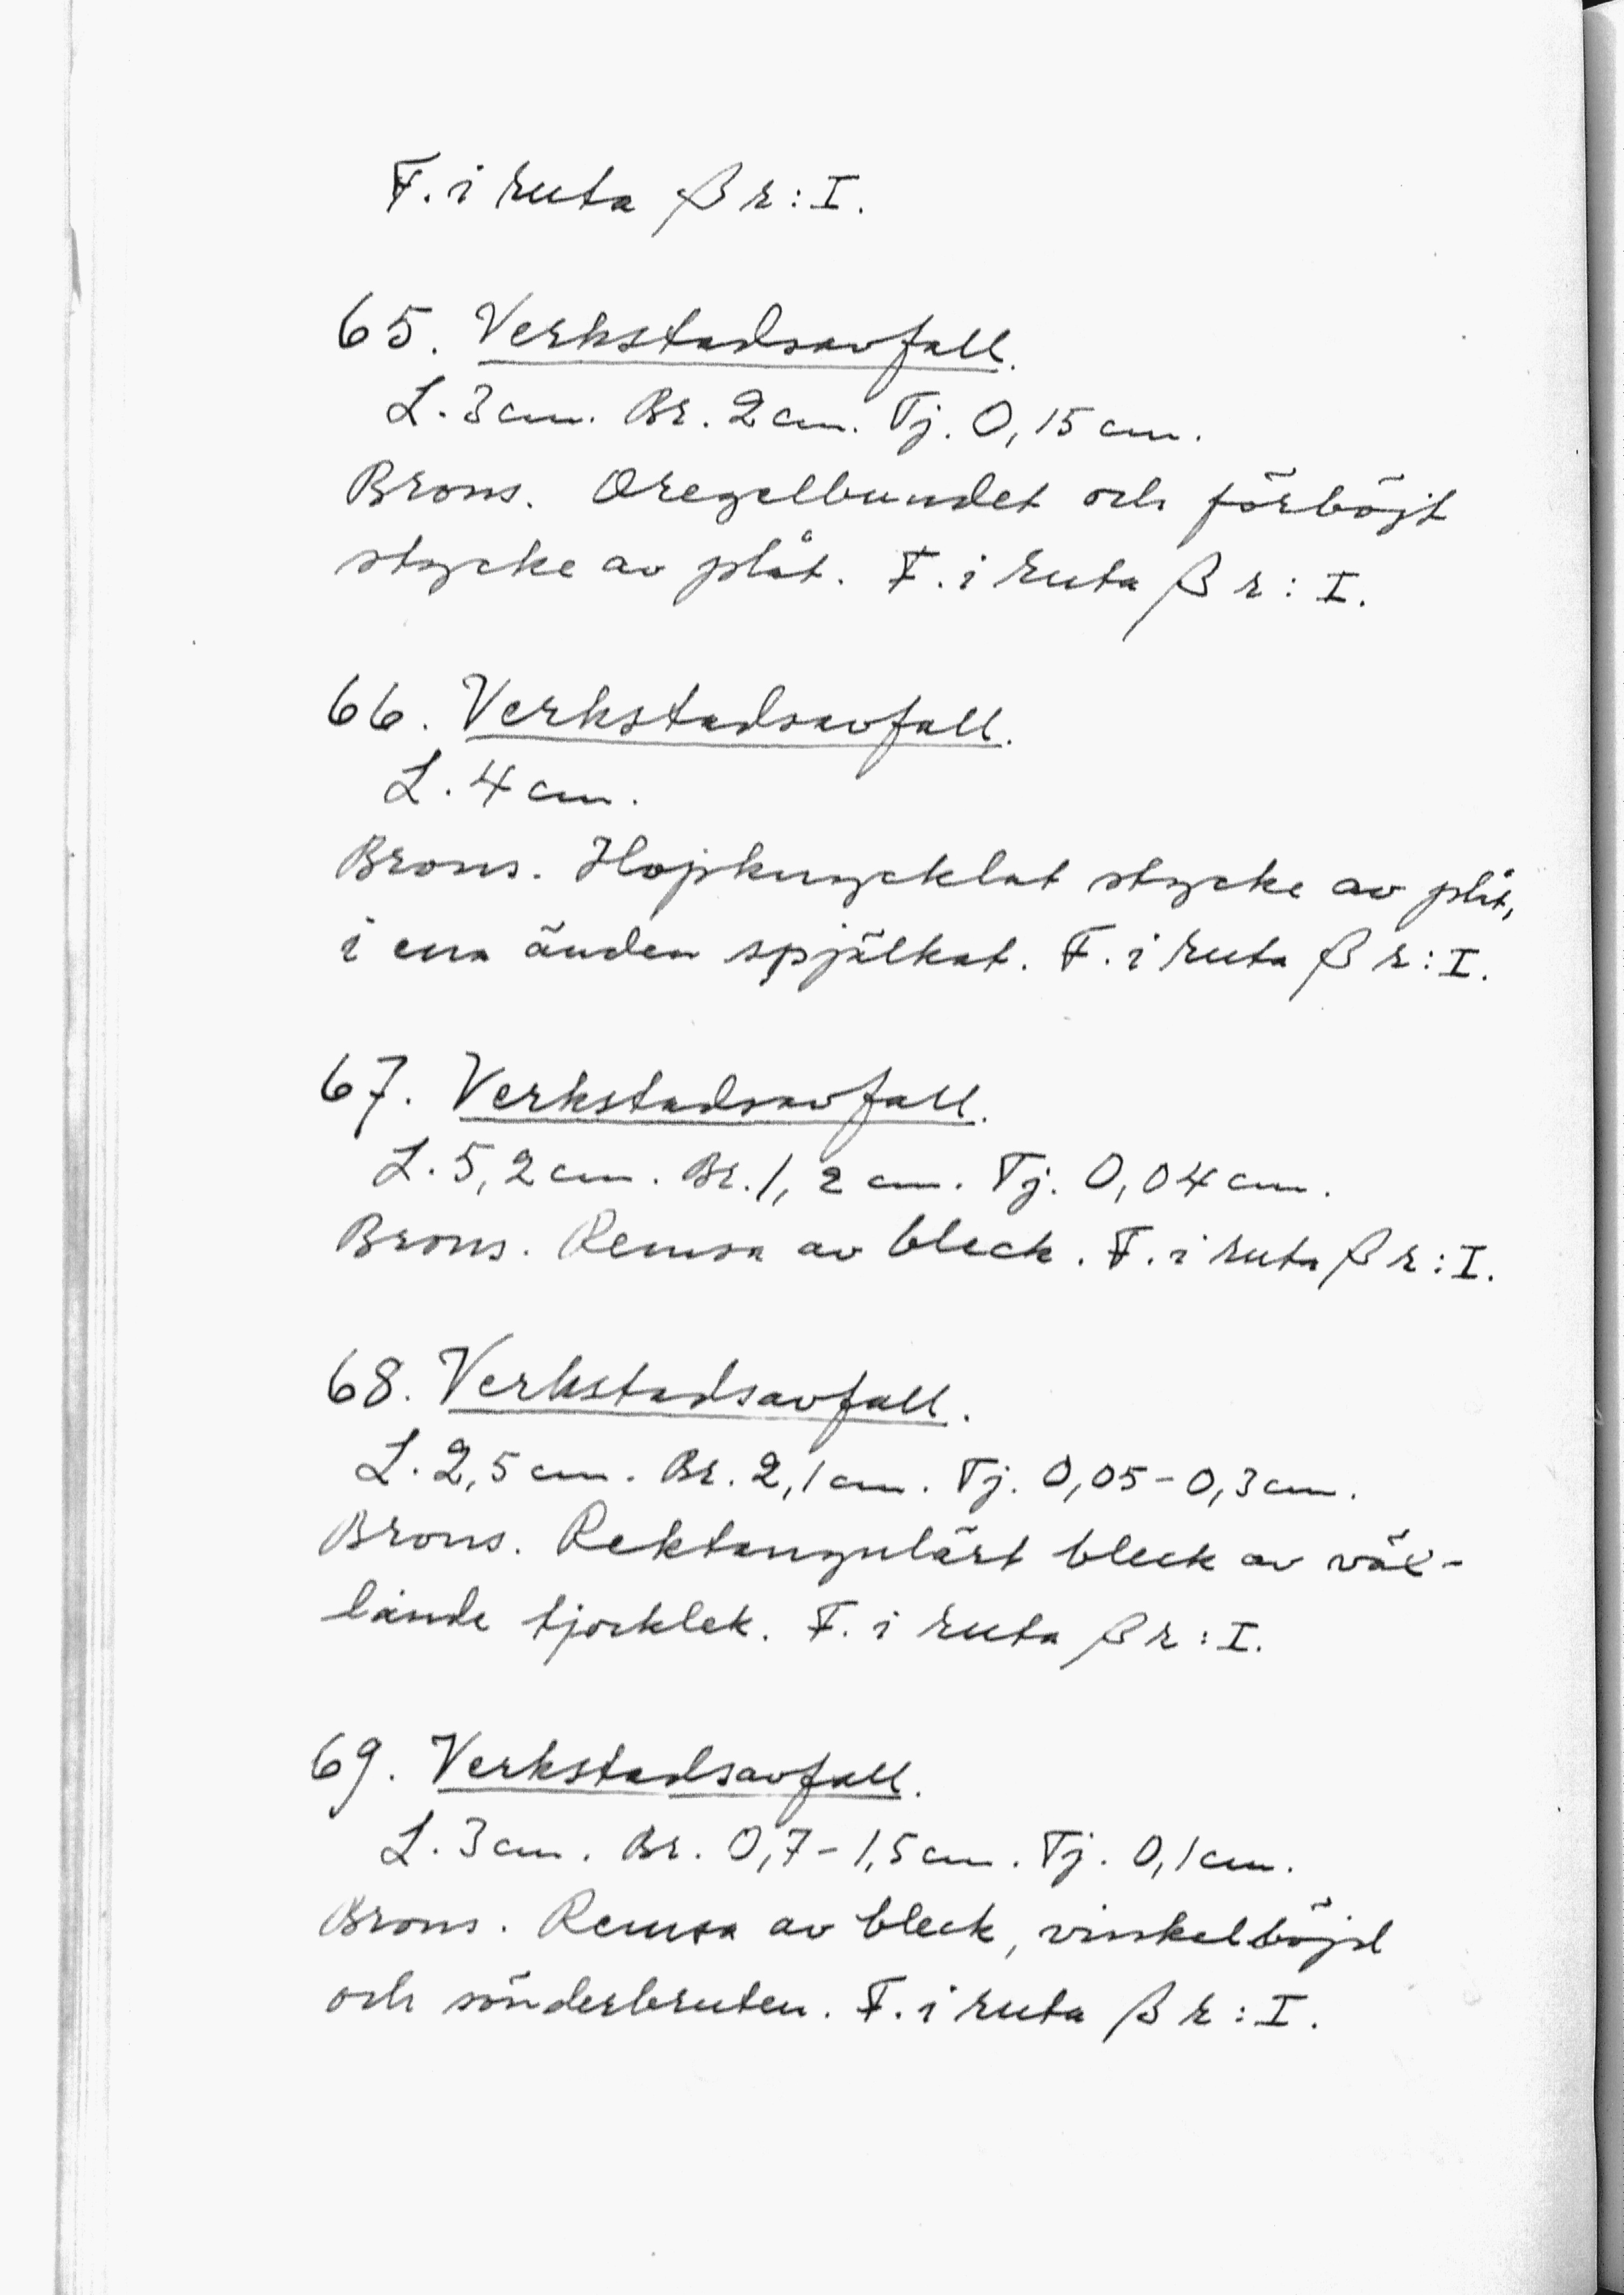 F. i ruta β r: I.
65. Verkstadsavfall.
L. 3 cm. Br. 2 cm. Tj. 0,15 cm.
Brons. Oregelbundet och förböjt
stycke av plåt. F. i ruta β r: I.
66. Verkstadsavfall.
L. 4 cm.
Brons. Hopknycklat stycke av plåt,
i ena änden spjälkat. F. i ruta β r: I.
67. Verkstadsavfall.
L. 5,2 cm. Br. 1,2 cm. Tj. 0,04 cm.
Brons. Remsa av bleck. F. i ruta β r: I.
68. Verkstadsavfall.
L. 2,5 cm. Br. 2,1 cm. Tj. 0,05-0,3 cm.
Brons. Rektangulärt bleck av väx-
lande tjocklek. F. i ruta β r: I.
69. Verkstadsavfall.
L. 3 cm. Br. 0,7-1,5 cm. Tj. 0,1 cm.
Brons. Remsa av bleck, vinkelböjd
och sönderbruten. F. i ruta β r: I.